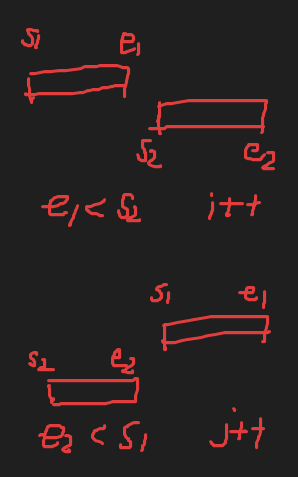 s1 e1
s2 e2
e1 < s2 i++
s1 e1
s2 e2
e2 < s1 j++